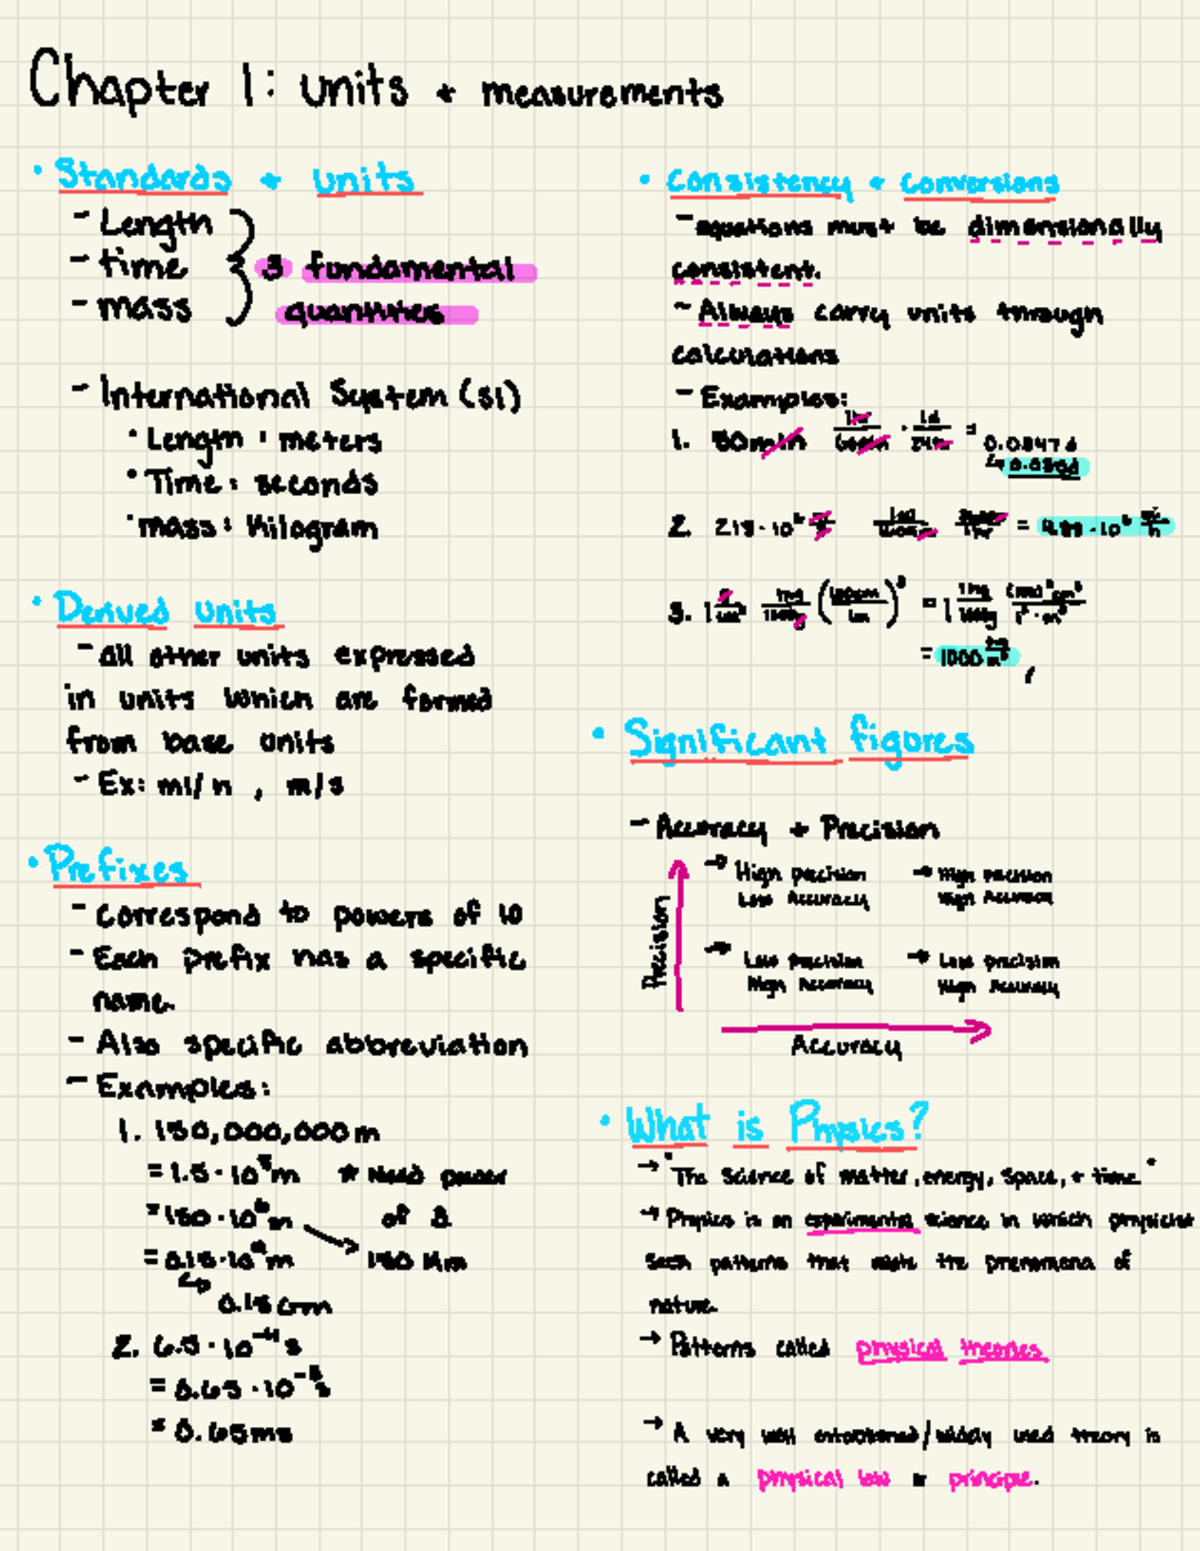 Chapter 1: units + measurements
• Standards + units
- Length
- time
- mass
3 fundamental
quantities
- International System (SI)
• Length: meters
• Time: seconds
• mass: Kilogram
• Derived units
- all other units expressed
in units which are formed
from base units
- Ex: mi/h, m/s
• Prefixes
- Correspond to powers of 10
- Each prefix has a specific
name.
- Also specific abbreviation
- Examples:
1. 150,000,000m
= 1.5 · 10⁸m * Need power
= 150 · 10⁶m of 3
= 0.15 · 10⁹m
0.15 Gm
2. 6.5 · 10⁻⁴s
= 0.65 · 10⁻³s
= 0.65ms
• Consistency + Conversions
- equations must be dimensionally
consistent.
- Always carry units through
calculations
- Examples:
1. 50min 1hr/60min · 1d/24hr = 0.0347d
2.
3.
= 1000 kg/m³
• Significant figures
- Accuracy + Precision
Precision
→ High precision
Low Accuracy
→ High precision
High Accuracy
→ Low precision
High Accuracy
→ Low precision
High Accuracy
Accuracy
• What is Physics?
→ "The Science of matter, energy, space, + time"
→ Physics is an experimental science in which physicist
seek patterns that relate the phenomena of
nature.
→ Patterns called physical theories
→ A very well established/widely used theory is
called a physical law or principle.